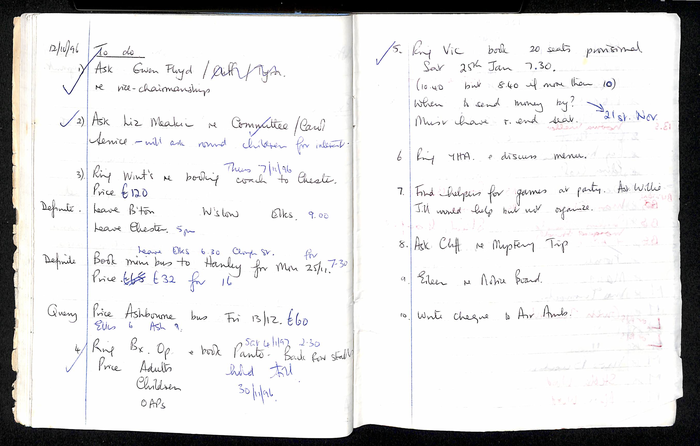 12/10/96 To do
1) Ask Gwen Floyd /
re vice-chairmanships
2) Ask Liz Meakin re Committee / Carol
Service - will ask round children for interest.
Thurs 7/11/96
3) Ring Wint's re booking coach to Chester.
Price £120
Definite. Leave Biton W'slow Elks. 9.00
Leave Chester. 5pm
Leave Elks 6.30 for 7.30
Definite Book mini bus to Hanley for Mon 25/11.
Price £32 for 16
Query Price Ashbourne bus Fri 13/12. £60
Elks & Ash
Sat 4/1/97 2.30
4. Ring Bx. Op. & book Panto. Back Row
Price Adults held till
Children 30/11/96
OAPs
5. Ring Vic book 20 seats provisional
Sat 25th Jan 7.30.
(10.40 but 8.40 if more than 10)
When to send money by?
21st. Nov
Must have r. end seat.
6 Ring YHA. & discuss menu.
7. Find helpers for games at party. Ask Willie
Jill would help but not organize.
8. Ask Cliff re Mystery Trip
9. Eileen re Notice Board.
10. Write cheque to Air Amb.